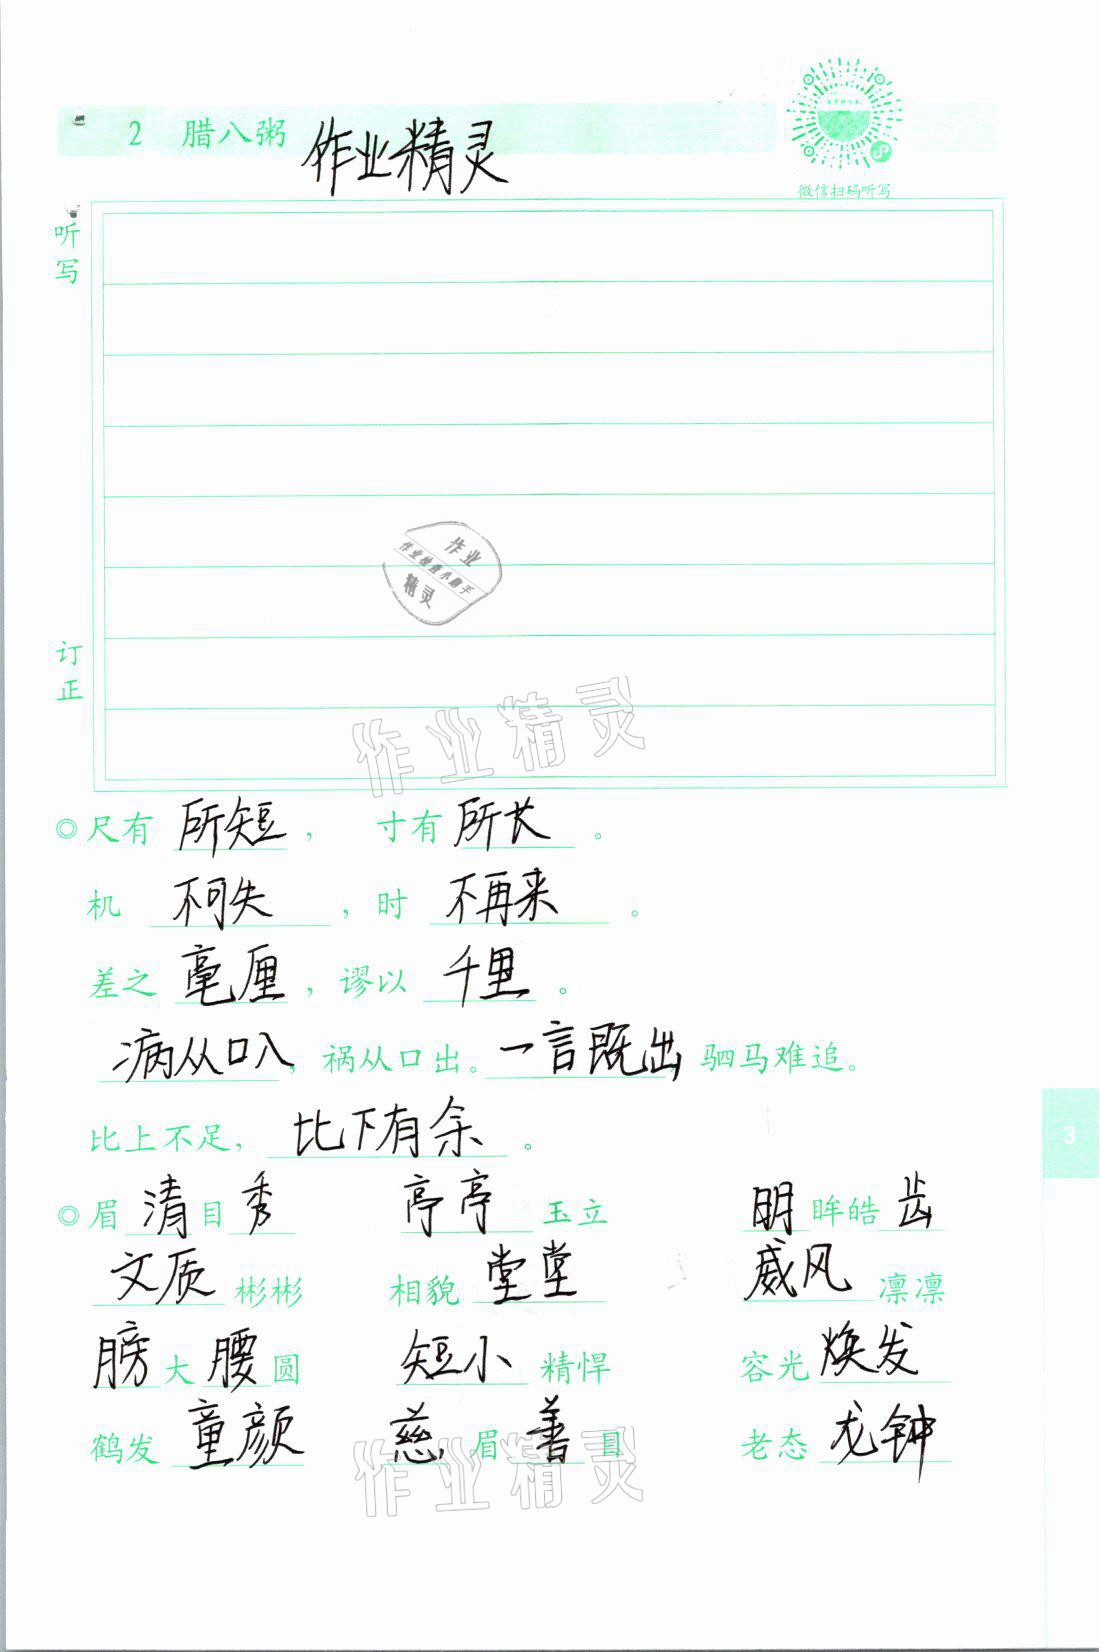 2 腊八粥 作业精灵
微信扫码听写
听写
作业
作业检查小助手
精灵
订正
作业精灵
◎尺有 所短 , 寸有 所长 。
机 不可失 , 时 不再来 。
差之 毫厘 , 谬以 千里 。
病从口入 , 祸从口出。 一言既出 , 驷马难追。
比上不足, 比下有余 。
3
◎眉 清 目 秀 亭亭 玉立 明 眸皓 齿
文质 彬彬 相貌 堂堂 威风 凛凛
膀 大 腰 圆 短小 精悍 容光 焕发
鹤发 童颜 慈 眉 善 目 老态 龙钟
作业精灵